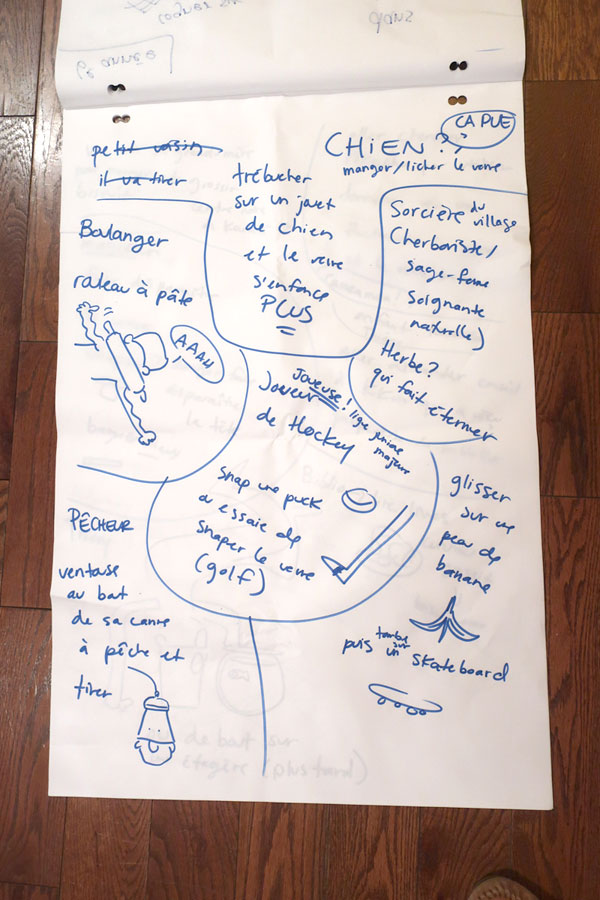 petit voisin
il va tirer
CHIEN ?
ÇA PUE
manger/licher le verre
trébucher
sur un jouet
de chien
et le verre
s'enfonce
PLUS
Boulanger
rouleau à pâte
AAAH
Sorcière du village
(herboriste/
sage-femme
soignante
naturelle)
Herbe?
qui fait éternuer
Joueur
Joyeuse!
de Hockey
ligue junior
majeure
snap une puck
ou essaie de
snaper le verre
(golf)
glisser
sur une
peau de
banane
puis tombe sur un skateboard
PÊCHEUR
ventouse
au bout
de sa canne
à pêche et
tirer